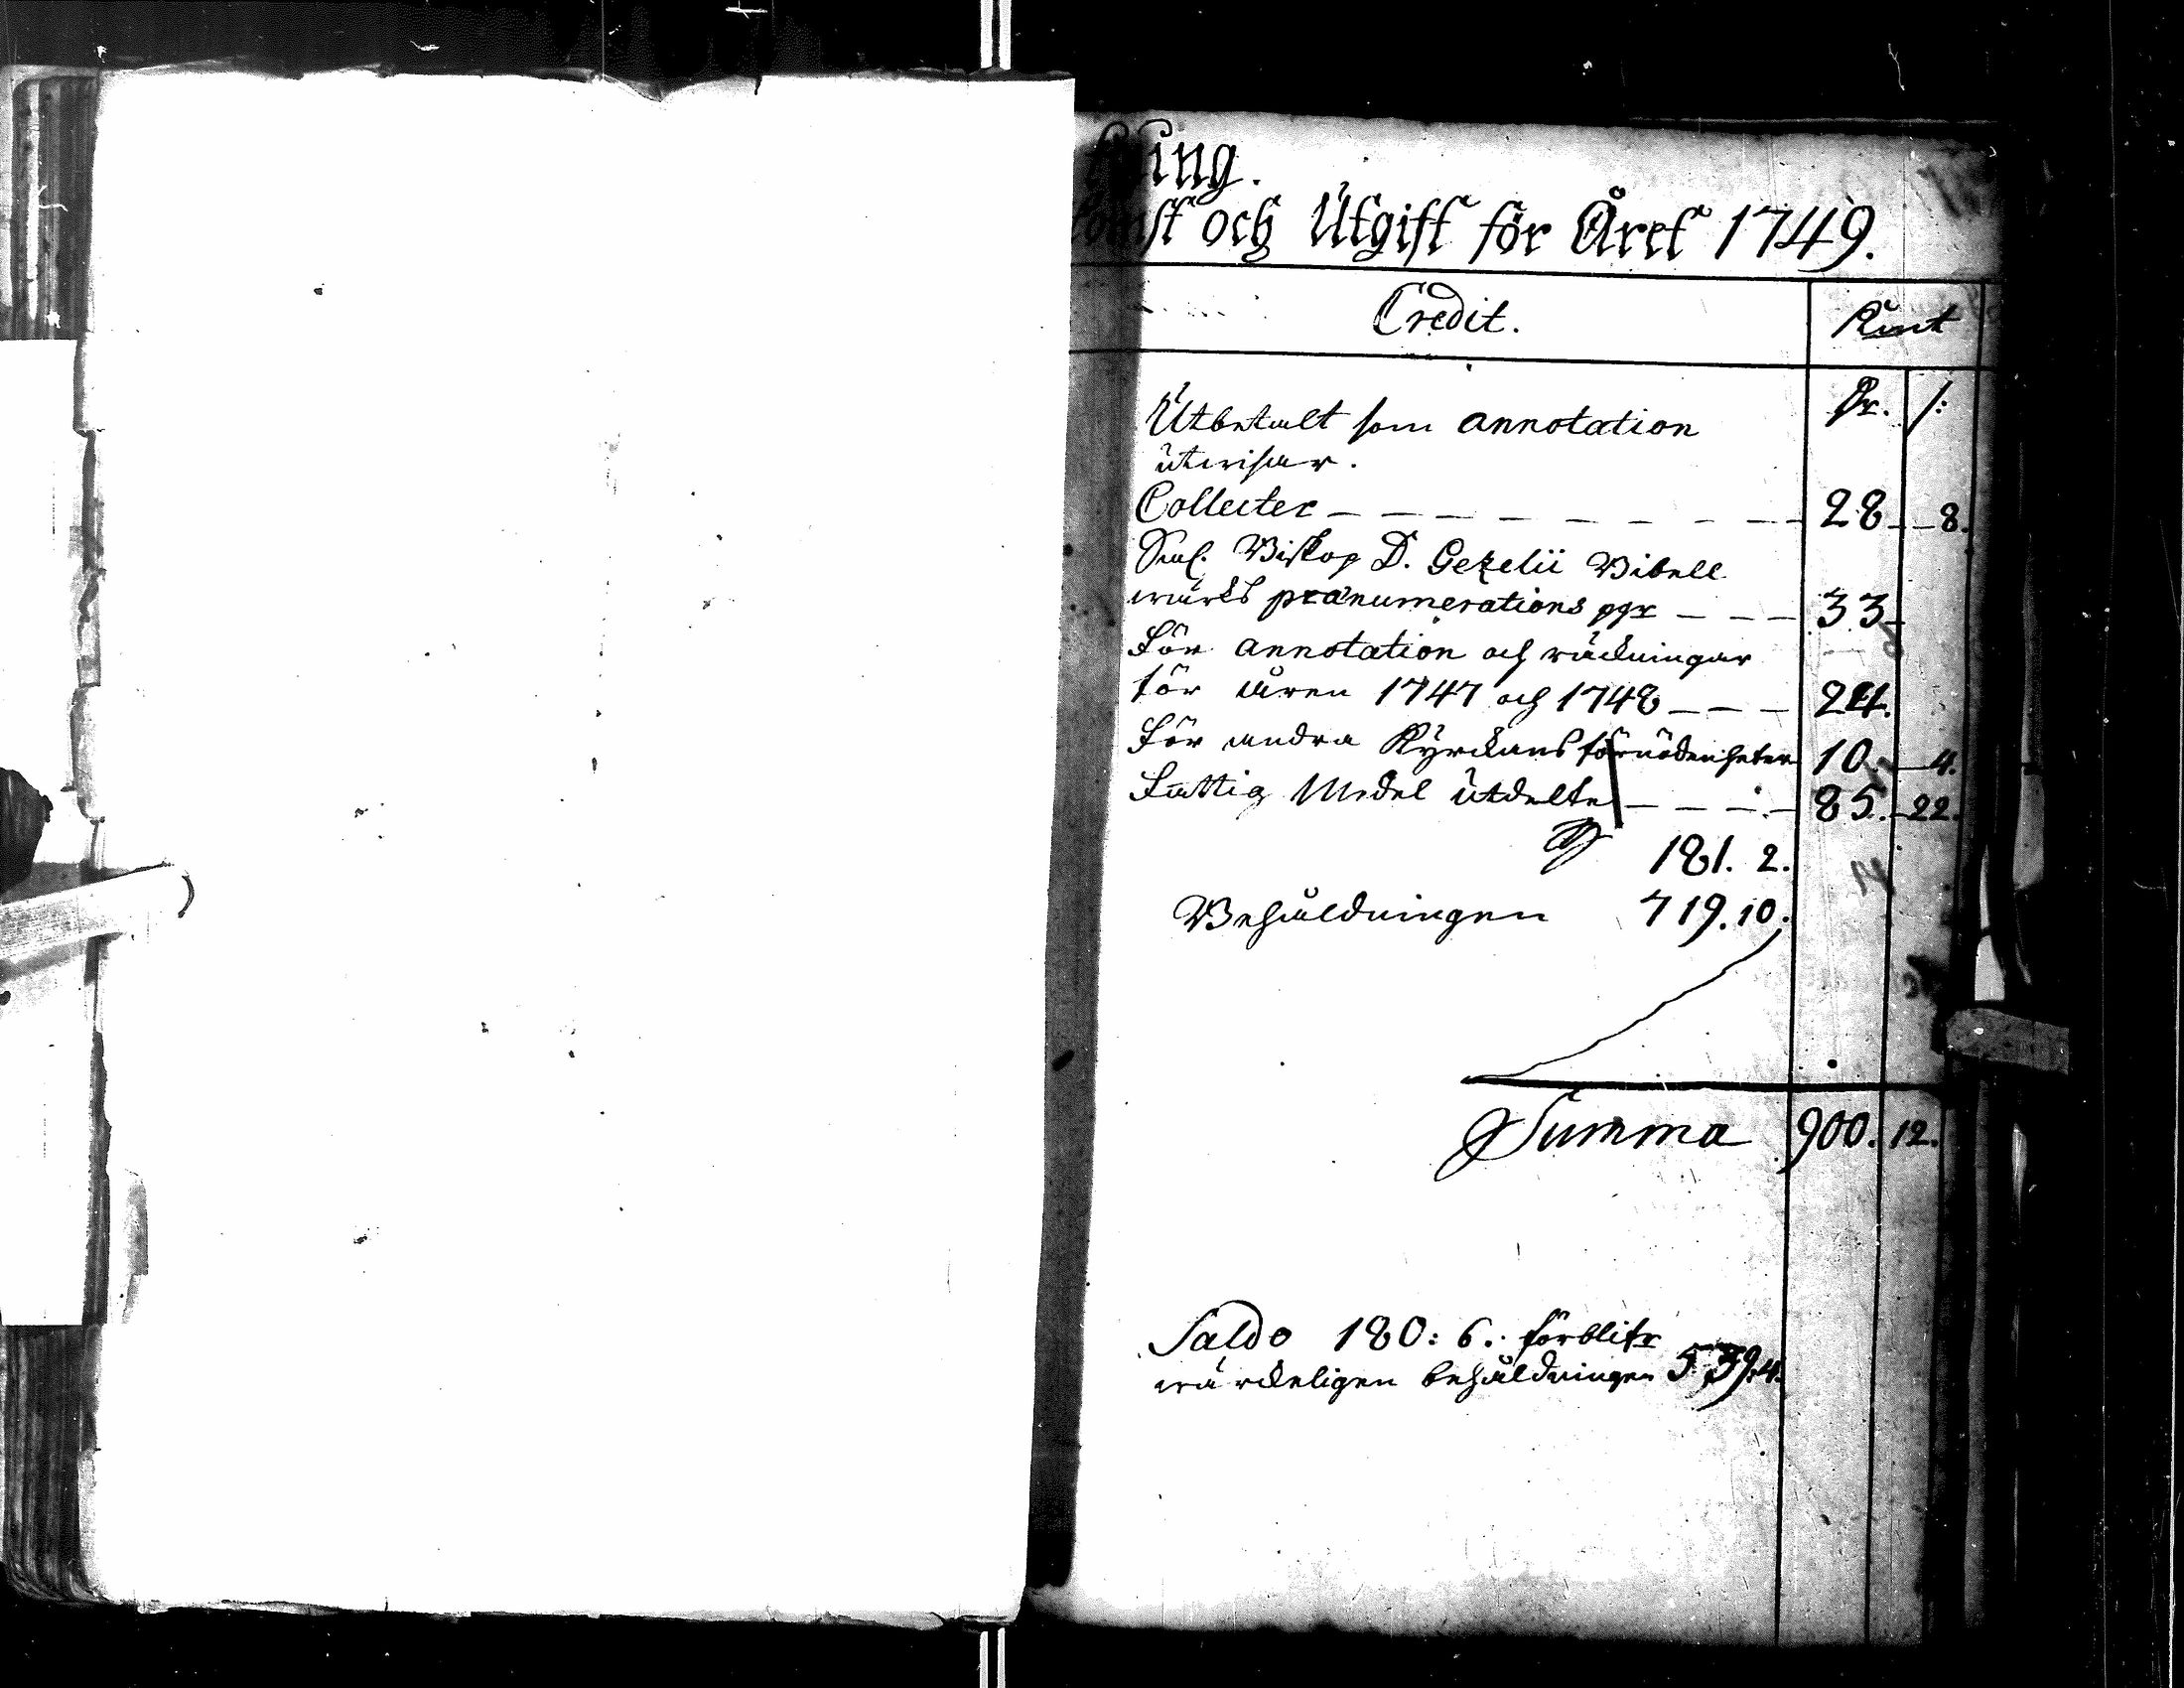 ning.
komst och Utgift för Året 1749.
Credit. Kmt
Dr. /:
Utbetalt som annotation
utwisar.
Collecter — — — — — — — — 28 — 8.
Sal. Biskop D. Gezelii Bibell
wärks prænumerations pgr — — — 33
För annotation och räckningar
för åren 1747 och 1748 — — — 24.
För andra Kyrckans förnödenheter 10. — 4.
Fattig Medel utdelte — — — — 85. — 22.
181. 2.
Behåldningen 719. 10.
Summa 900. 12.
Saldo 180: 6. förblifr
wärckeligen behåldningen 539:4.